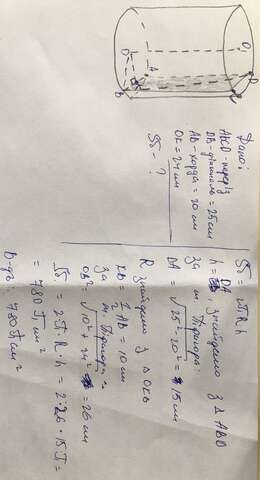 O
O₁
A
B
K
D
C
Дано:
ABCD - переріз
DB - діагональ = 25 см
AB - хорда = 20 см
OK = 24 см
S̄б - ?
Sб = 2πRh
h = DA, знайдемо з ΔABD
За т. Піфагора:
DA = √25²-20² = 15 см
R знайдемо з ΔOKB
KB = 1/2 AB = 10 см
За т. Піфагора
OB² = √10² + 24² = 26 см
Sб = 2·π·R·h = 2·26·15π =
= 780π см²
В-дь: 780π см²